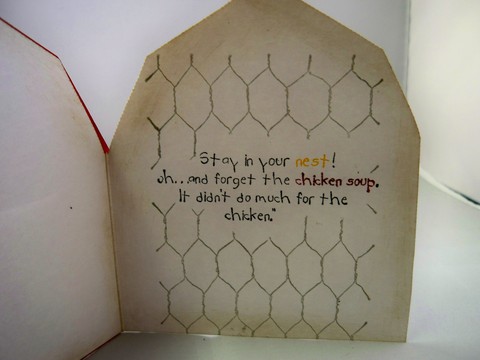 Stay in your nest!
oh...and forget the chicken soup.
It didn't do much for the
chicken."